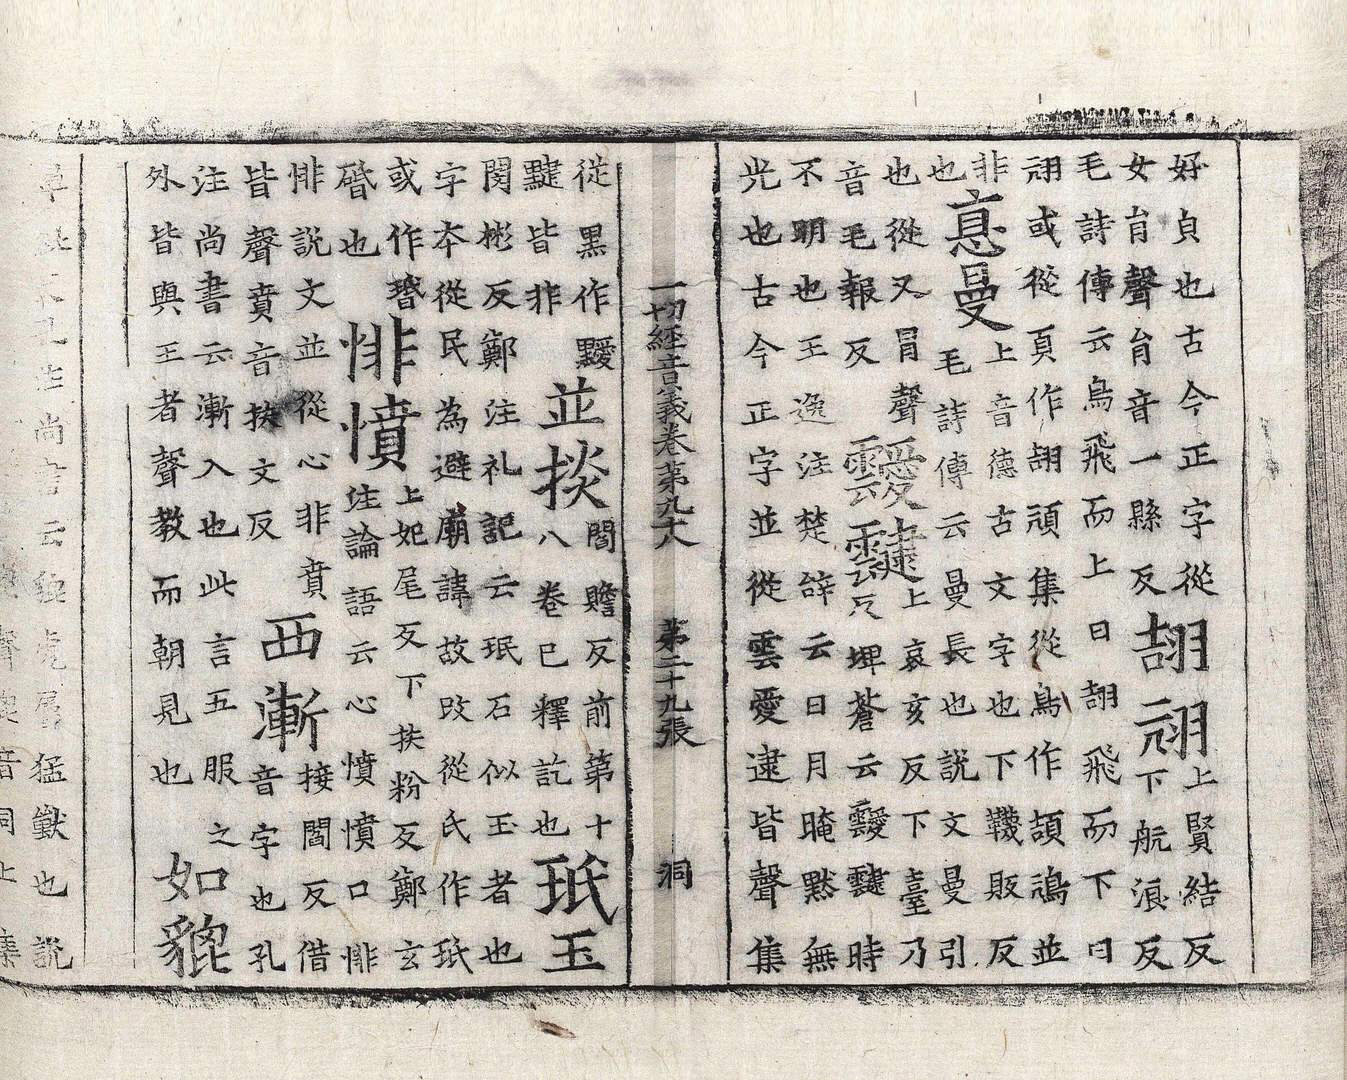 好貞也古今正字從
女㠯聲㠯音一縣反
翓翃
上賢結反
下航浪反
毛詩傳云鳥飛而上曰翓飛而下曰
翃或從頁作頡頏集從鳥作鴶鴋並
非
也
悳曼
上音德古文字也下韈販反
毛詩傳云曼長也說文曼引
也從又冒聲
音毛報反
靉靆
上哀亥反下臺乃
反埤蒼云靉靆時
不明也王逸注楚辝云日月晻黙無
光也古今正字並從雲愛逮皆聲集
一切經音義卷第九十八 第二十九張 洞
從黒作
皆非
並掞
閻贍反前第十
八卷已釋訖也
珉玉
閔彬反鄭注礼記云珉石似玉者也
字夲從民為避廟諱故改從氏作珉
或作瑉
碈也
悱憤
上妃尾反下扶粉反鄭玄
注論語云心憤憤口悱
悱說文並從心非賁
皆聲賁音扶文反
西漸
接閻反借
音字也孔
注尚書云漸入也此言五服之
外皆與王者聲教而朝見也
如貔
孔注尚書云貔虎屬猛獸也說
聲 音同上集